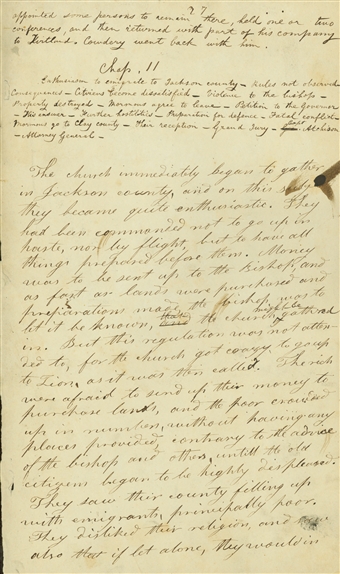 appointed some persons to remain there, held one or two
conferences, and then returned with part of his company
to Kirtland. Cowdery went back with him.
Chap. 11
Enthusiasm to emigrate to Jackson county – Rules not observed
Consequences – Citizens become dissatisfied – Violence to the bishop –
Property destroyed – Mormons agree to leave – Petition to the Governor
– His answer – Further hostilities – Preparation for defence – Fatal conflict –
Mormons go to Clay county – Their reception – Grand Jury – Atchison
– Attorney General –
The church immediately began to gather
in Jackson county, and on this subject
they became quite enthusiastic. They
had been commanded not to go up in
haste, nor by flight, but to have all
things prepared before them. Money
was to be sent up to the bishop, and
as fast as lands were purchased and
preparations made the bishop was to
let it be known, the church might be gathered
in. But this regulation was not atten-
ded to, for the church got crazy to go up
to Zion, as it was then called. The rich
were afraid to send up their money to
purchase lands, and the poor crowded
up in numbers, without having any
places provided, contrary to the advice
of the bishop and others, untill the old
citizens began to be highly displeased.
They saw their county filling up
with emigrants, principally poor.
They disliked their religion, and saw
also that if let alone, they would in